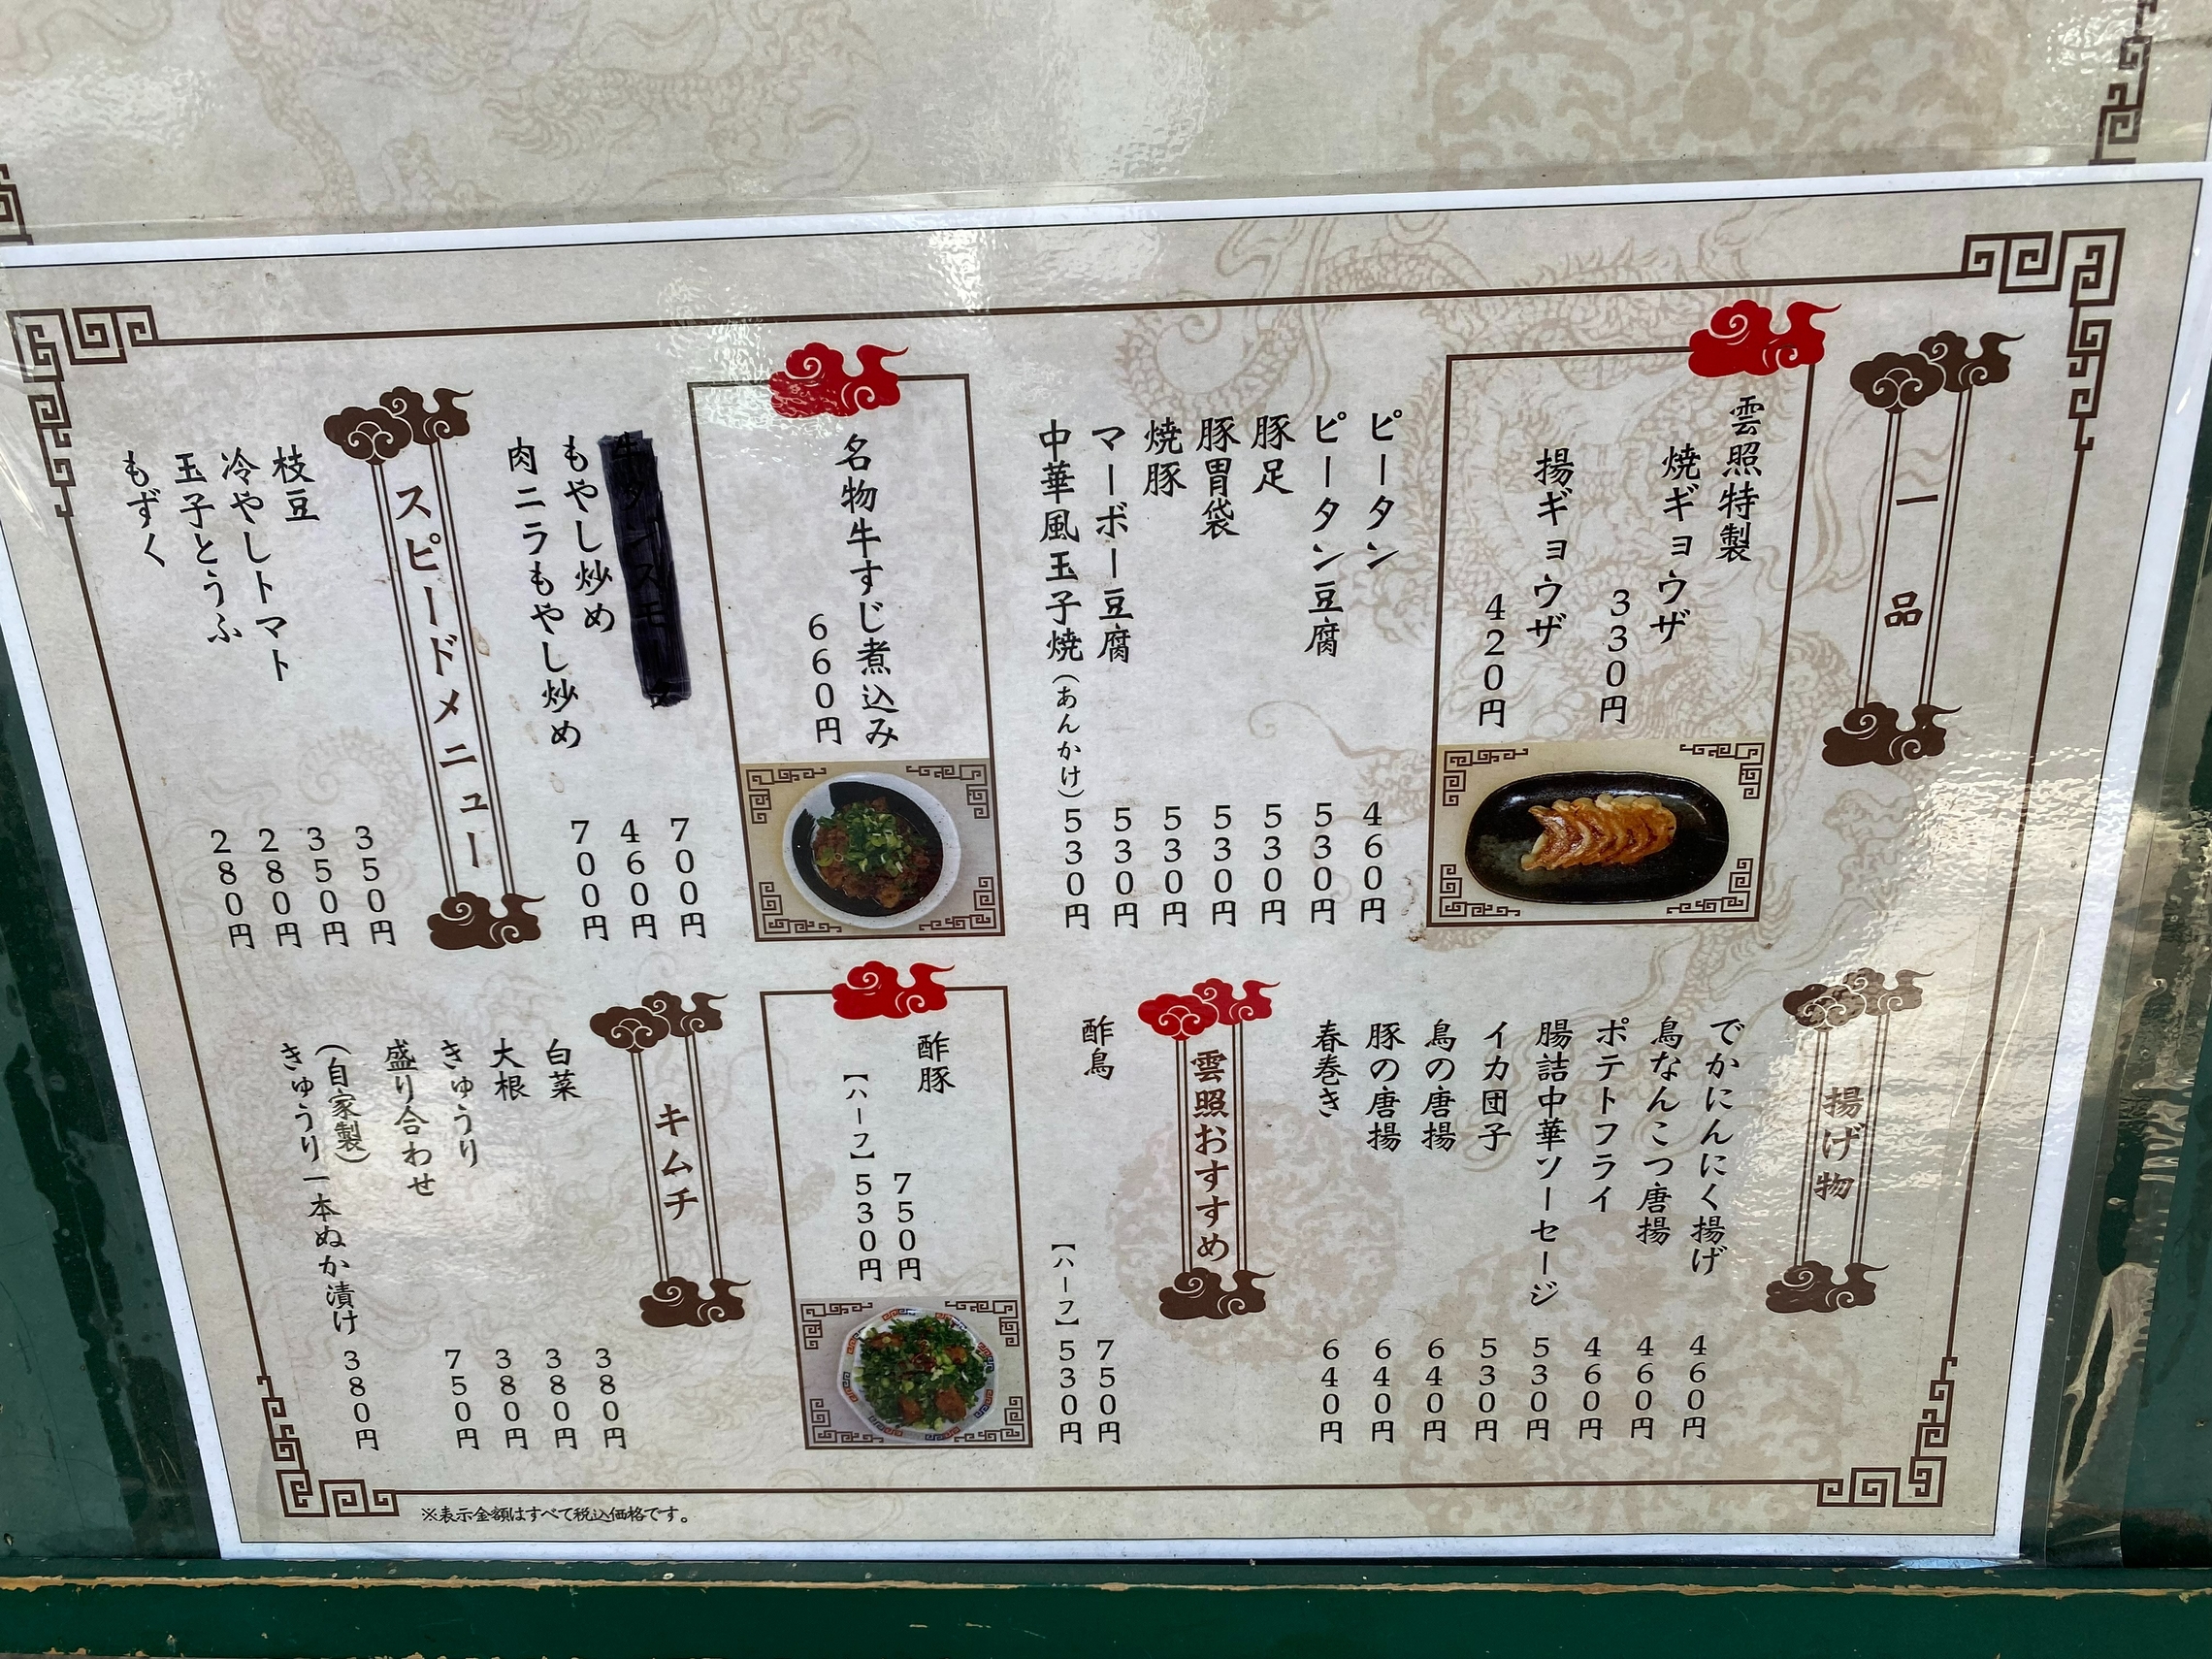 一品
雲照特製
焼ギョウザ
330円
揚ギョウザ
420円
ピータン 460円
ピータン豆腐 530円
豚足 530円
豚胃袋 530円
焼豚 530円
マーボー豆腐 530円
中華風玉子焼(あんかけ) 530円
名物牛すじ煮込み
660円
700円
もやし炒め 460円
肉ニラもやし炒め 700円
スピードメニュー
枝豆 350円
冷やしトマト 350円
玉子とうふ 280円
もずく 280円
揚げ物
でかにんにく揚げ 460円
鳥なんこつ唐揚 460円
ポテトフライ 460円
腸詰中華ソーセージ 530円
イカ団子 530円
鳥の唐揚 640円
豚の唐揚 640円
春巻き 640円
雲照おすすめ
酢鳥 750円
【ハーフ】530円
酢豚
750円
【ハーフ】530円
キムチ
白菜 380円
大根 380円
きゅうり 380円
盛り合わせ 750円
(自家製)
きゅうり一本ぬか漬け 380円
※表示金額はすべて税込価格です。